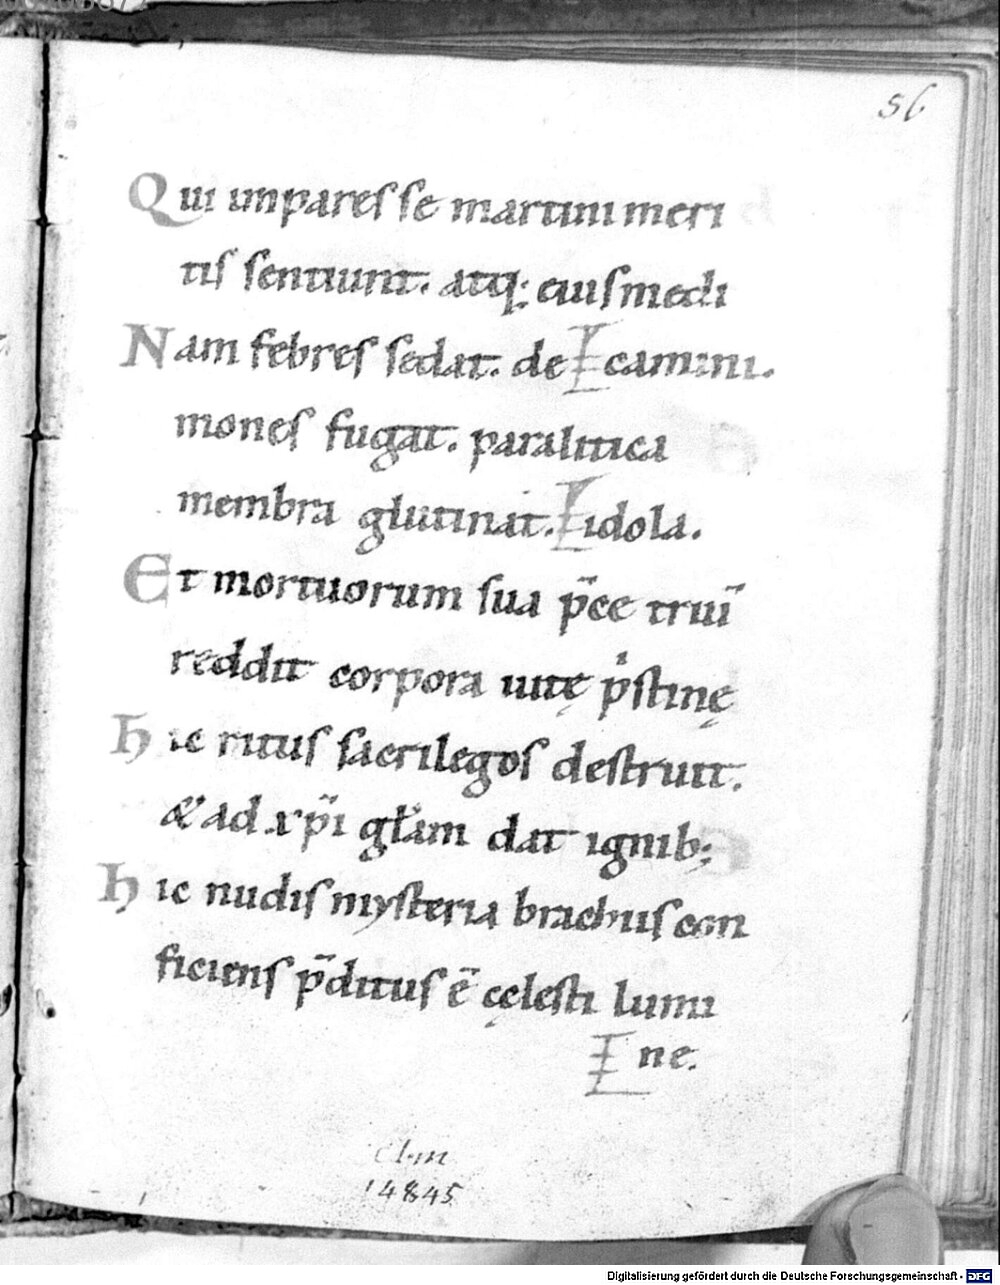 56
Qui inpares se martini meri
tis sentiunt. atq; eius medi
Nam febres sedat. de camini.
mones fugat. paralitica
membra glutinat. idola.
Et mortuorum sua p̄ce truī
reddit corpora uitę pͥstinę
hic ritus sacrilegos destruit.
& ad xp̄i gl̄am dat ignib;
hic nudis mysteria brachiis con
ficiens p̄ditus ē cęlesti lumi
ne.
clm
14845
Digitalisierung gefördert durch die Deutsche Forschungsgemeinschaft - DFG